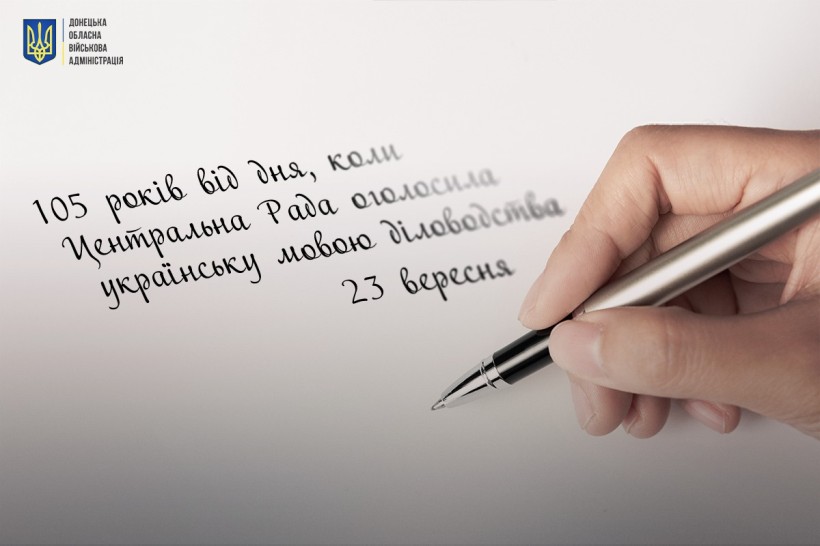 ДОНЕЦЬКА
ОБЛАСНА
ВІЙСЬКОВА
АДМІНІСТРАЦІЯ
105 років від дня, коли
Центральна Рада оголосила
українську мовою діловодства
23 вересня